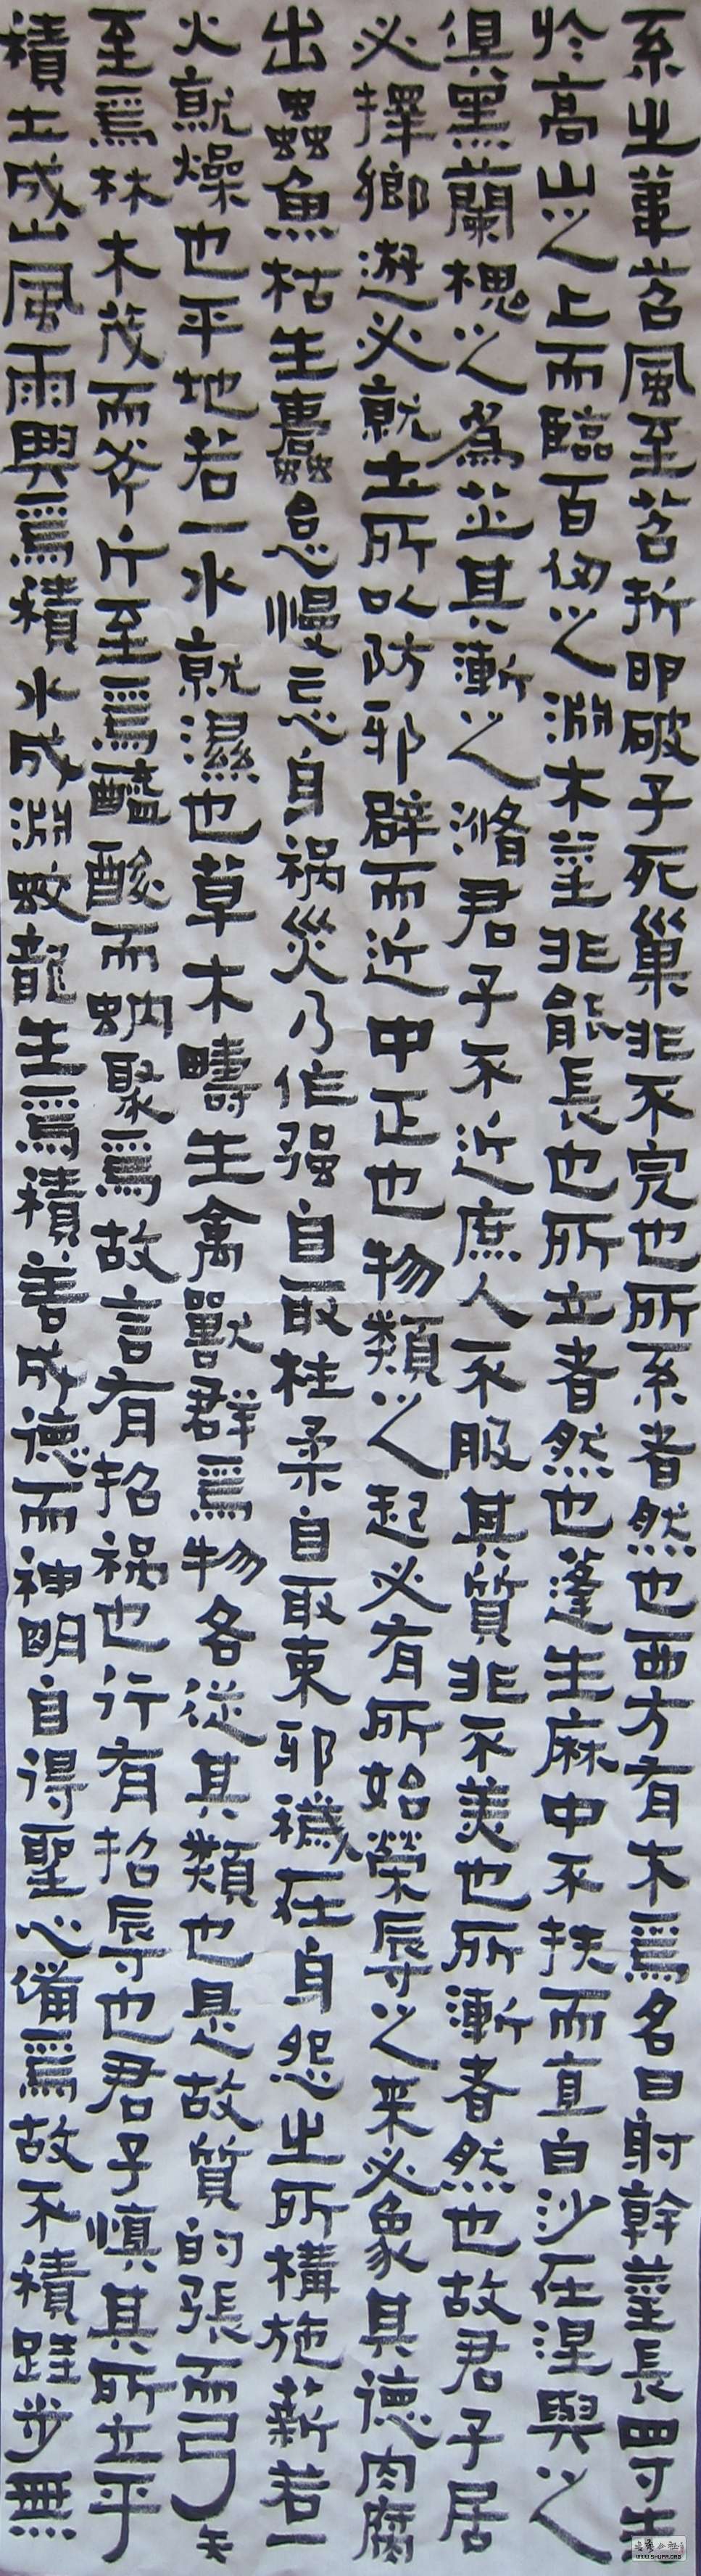 系之葦苕風至苕折卵破子死巢非不完也所系者然也西方有木焉名曰射幹莖長四寸生
於高山之上而臨百仞之淵木莖非能長也所立者然也蓬生麻中不扶而直白沙在涅與之
俱黑蘭槐之為芷其漸之滫君子不近庶人不服其質非不美也所漸者然也故君子居
必擇鄉遊必就士所以防邪辟而近中正也物類之起必有所始榮辱之来必象其德肉腐
出蟲魚枯生蠹怠慢忘身祸災乃作强自取柱柔自取束邪穢在身怨之所構施薪若一
火就燥也平地若一水就濕也草木疇生禽獸群焉物各從其類也是故質的張而弓矢
至焉林木茂而斧斤至焉醯酸而蚋聚焉故言有招祸也行有招辱也君子慎其所立乎
積土成山風雨興焉積水成淵蛟龍生焉積善成德而神明自得聖心備焉故不積跬步無
WWW.SHUFA.ORG